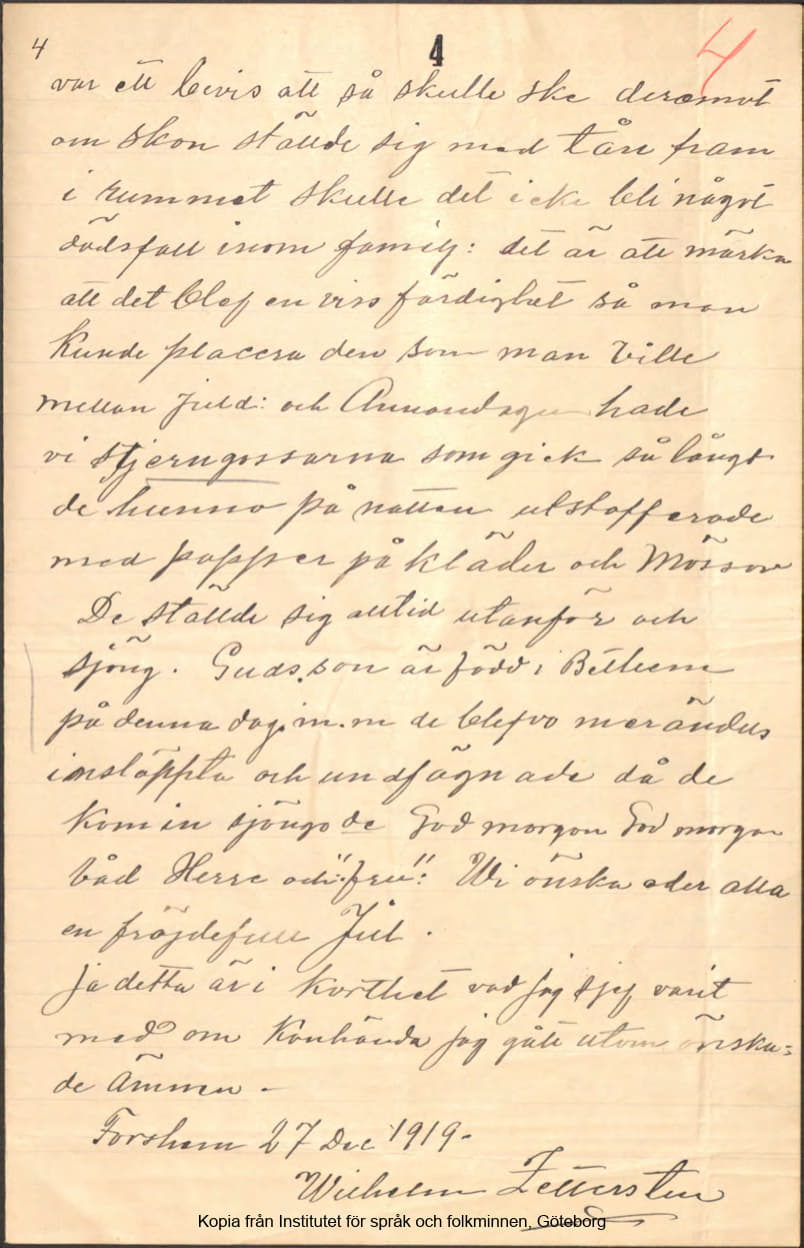 4
4
4
var ett bevis att så skulle ske deremot
om skon ställde sig med tån fram
i rummet skulle det icke bli något
dödsfall inom familj: det är att märka
att det blef en viss färdighet så man
kunde placera den som man ville
mellan Juld: och Annandagen hade
vi stjerngossarna som gick så långt
de hunno på natten utstofferade
med papper på kläder och Mössor
De ställde sig alltid utanför och
sjöng. Guds son är född i Betleem
på denna dag. m.m de blefvo merändels
insläppta och undfägnade då de
kom in sjöngo de God morgon God morgon
båd Herre och "fru": Wi önska eder alla
en fröjdefull Jul.
Ja detta är i korthet vad jag sjef varit
med om kanhända jag gått utom önska=
de Ämmen -
Forshem 27 Dec 1919-
Wilhelm Zettersten
Kopia från Institutet för språk och folkminnen, Göteborg